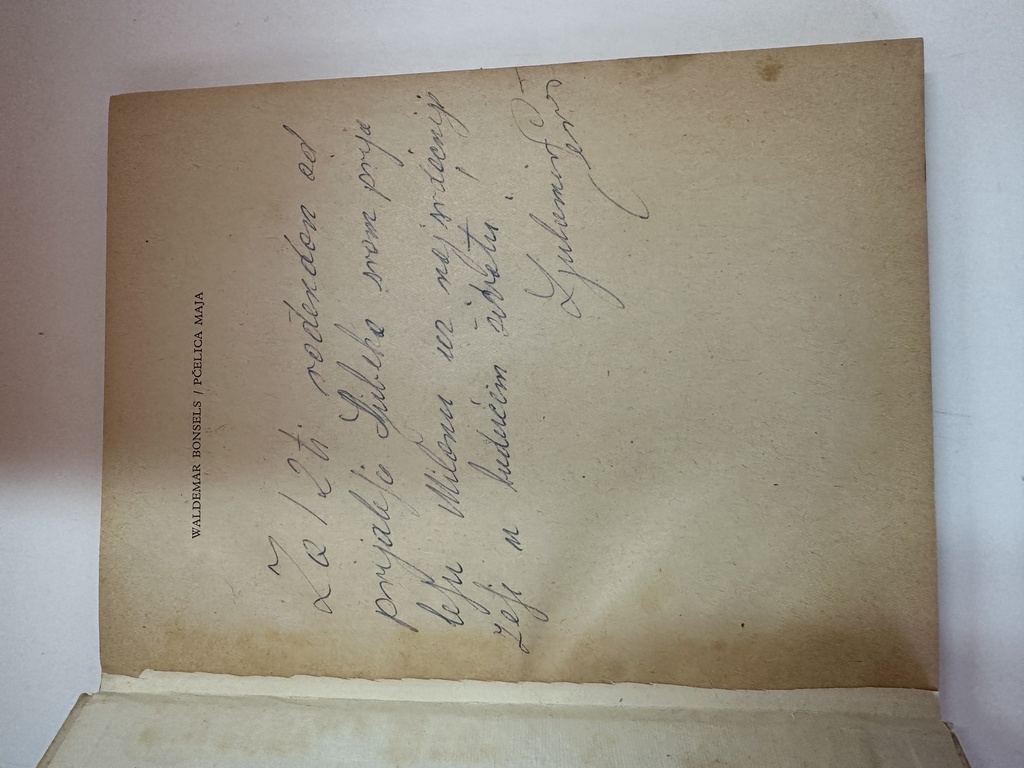 WALDEMAR BONSELS / PČELICA MAJA
Za 12ti rođendan od
prijatelja Ljubeka svom prija
telju Milanu uz najsrdačnije
želje u budućem životu!
Ljubomir